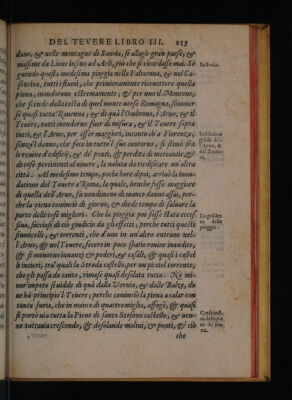 DEL TEVERE LIBRO III. 253
dano, & nelle montagne di Sauoia, si allagò gran paese, &
massime da Lione insino ad Arli, più che si ricordasse mai. Se
guendo questa medesima pioggia nella Falterona, & nel Ca-
sentino, tutti i fiumi, che primieramente riceuettero quella
piena, inondarono estremamente; & per uno il Montone,
che scende dalla costa di quel monte uerso Romagna, sommer
se quasi tutta Rauenna; & di quà l'Ombrone, l'Arno, & il
Teuere, tutti inondorno fuor di misura, & il Teuere sopra
tutti, & l'Arno, per esser maggiori, intanto ch'a Fiorenza,
senza'l danno, che fece in tutto'l suo contorno, si stimò fra
le ruine d'edificij, & de' ponti, & perdita di mercantie, &
di cose pertinenti al uiuere, la ualuta da riedificare un'altra
città. Al medesimo tempo, poche hore dipoi, arriuò la inon-
dation del Teuere à Roma, la quale, benche fusse maggiore
di quella dell'Arno, fù nondimeno di manco danno assai, per-
che la piena cominciò di giorno, & diede tempo di saluare la
parte delle cose migliori. Che la pioggia poi fusse stata ecces
siua, facciasi di ciò giudicio da gli effetti, perche tutti questi
fiumicelli, & torrenti, che d'anno in un'altro entrano nel-
l'Arno, & nel Teuere, fecero in poco spatio ruine inaudite,
& si minorno innanzi & poderi, & casali, & quasi i castel
li interi, tra' quali la Strada castello, per un picciol torrente,
che gli passa da canto, rimase quasi desolata tutta. Nè mi-
nor impeto si uidde di quà dalla Vernia, & dalle Balze, do
ue hà principio l Teuere; perche cominciò la piena à calar con
tanta furia, che in manco di quattro miglia, affogò, & quasi
si portò uia tutta la Pieue di santo Stefano castello, & uen-
ne tuttauia crescendo, & desolando molini, & ponti, & ciò
che
In Italia.
Inõdation
grãde del-
l'Arno, &
del Teuere
La grãdez
za della
pioggia.